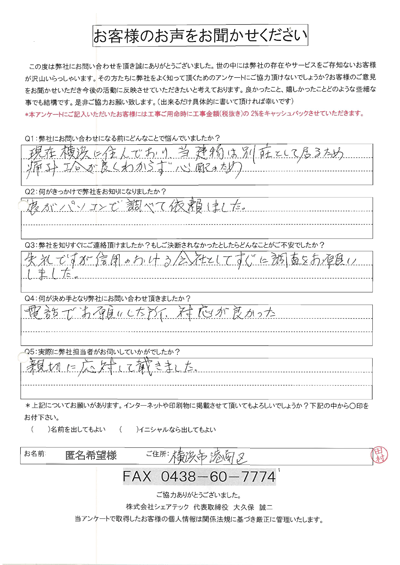 お客様のお声をお聞かせください
この度は弊社にお問い合わせを頂き誠にありがとうございました。世の中には弊社の存在やサービスをご存知ないお客様
が沢山いらっしゃいます。その方たちに弊社をよく知って頂くためのアンケートにご協力頂けないでしょうか?お客様のご意見
をお聞かせいただき今後の活動に反映させていただきたいと考えております。良かったこと、嬉しかったことどのような些細な
事でも結構です。是非ご協力お願い致します。(出来るだけ具体的に書いて頂ければ幸いです)
*本アンケートにご記入いただいたお客様には工事ご用命時に工事金額(税抜き)の2%をキャッシュバックさせていただきます。
Q1:弊社にお問い合わせになる前にどんなことで悩んでいましたか?
現在横浜に住んでおり当建物は別荘として居るため
痛み具合が良くわからず心配のため
Q2:何がきっかけで弊社をお知りになりましたか?
娘がパソコンで調べて依頼しました。
Q3:弊社を知りすぐにご連絡頂けましたか?もしご決断されなかったとしたらどんなことがご不安でしたか?
失礼ですが信用のおける会社としてすぐに調査をお願い
しました。
Q4:何が決め手となり弊社にお問い合わせ頂きましたか?
電話でお願いした所、対応が良かった
Q5:実際に弊社担当者がお伺いしていかがでしたか?
親切に応対して戴きました。
*上記についてお願いがあります。インターネットや印刷物に掲載させて頂いてもよろしいでしょうか?下記の中から〇印を
お付け下さい。
( )名前を出してもよい ( )イニシャルなら出してもよい
お名前 匿名希望様 ご住所: 横浜市港南区
FAX 0438-60-7774
ご協力ありがとうございました。
株式会社シェアテック 代表取締役 大久保 誠二
当アンケートで取得したお客様の個人情報は関係法規に基づき厳正に管理いたします。